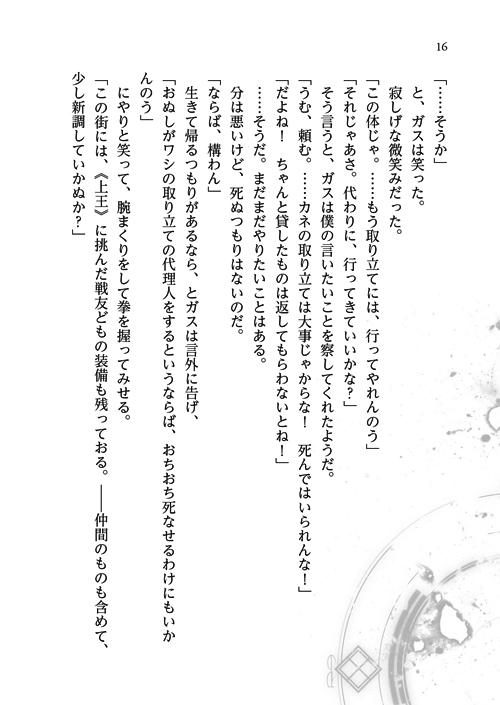 16
「……そうか」
と、ガスは笑った。
寂しげな微笑みだった。
「この体じゃ。……もう取り立てには、行ってやれんのう」
「それじゃあさ。代わりに、行ってきていいかな？」
そう言うと、ガスは僕の言いたいことを察してくれたようだ。
「うむ、頼む。……カネの取り立ては大事じゃからな！　死んではいられんな！」
「だよね！　ちゃんと貸したものは返してもらわないとね！」
……そうだ。まだまだやりたいことはある。
分は悪いけど、死ぬつもりはないのだ。
「ならば、構わん」
生きて帰るつもりがあるなら、とガスは言外に告げ、
「おぬしがワシの取り立ての代理人をするというならば、おちおち死なせるわけにもいか
んのう」
にやりと笑って、腕まくりをして拳を握ってみせる。
「この街には、《上王》に挑んだ戦友どもの装備も残っておる。――仲間のものも含めて、
少し新調していかぬか？」